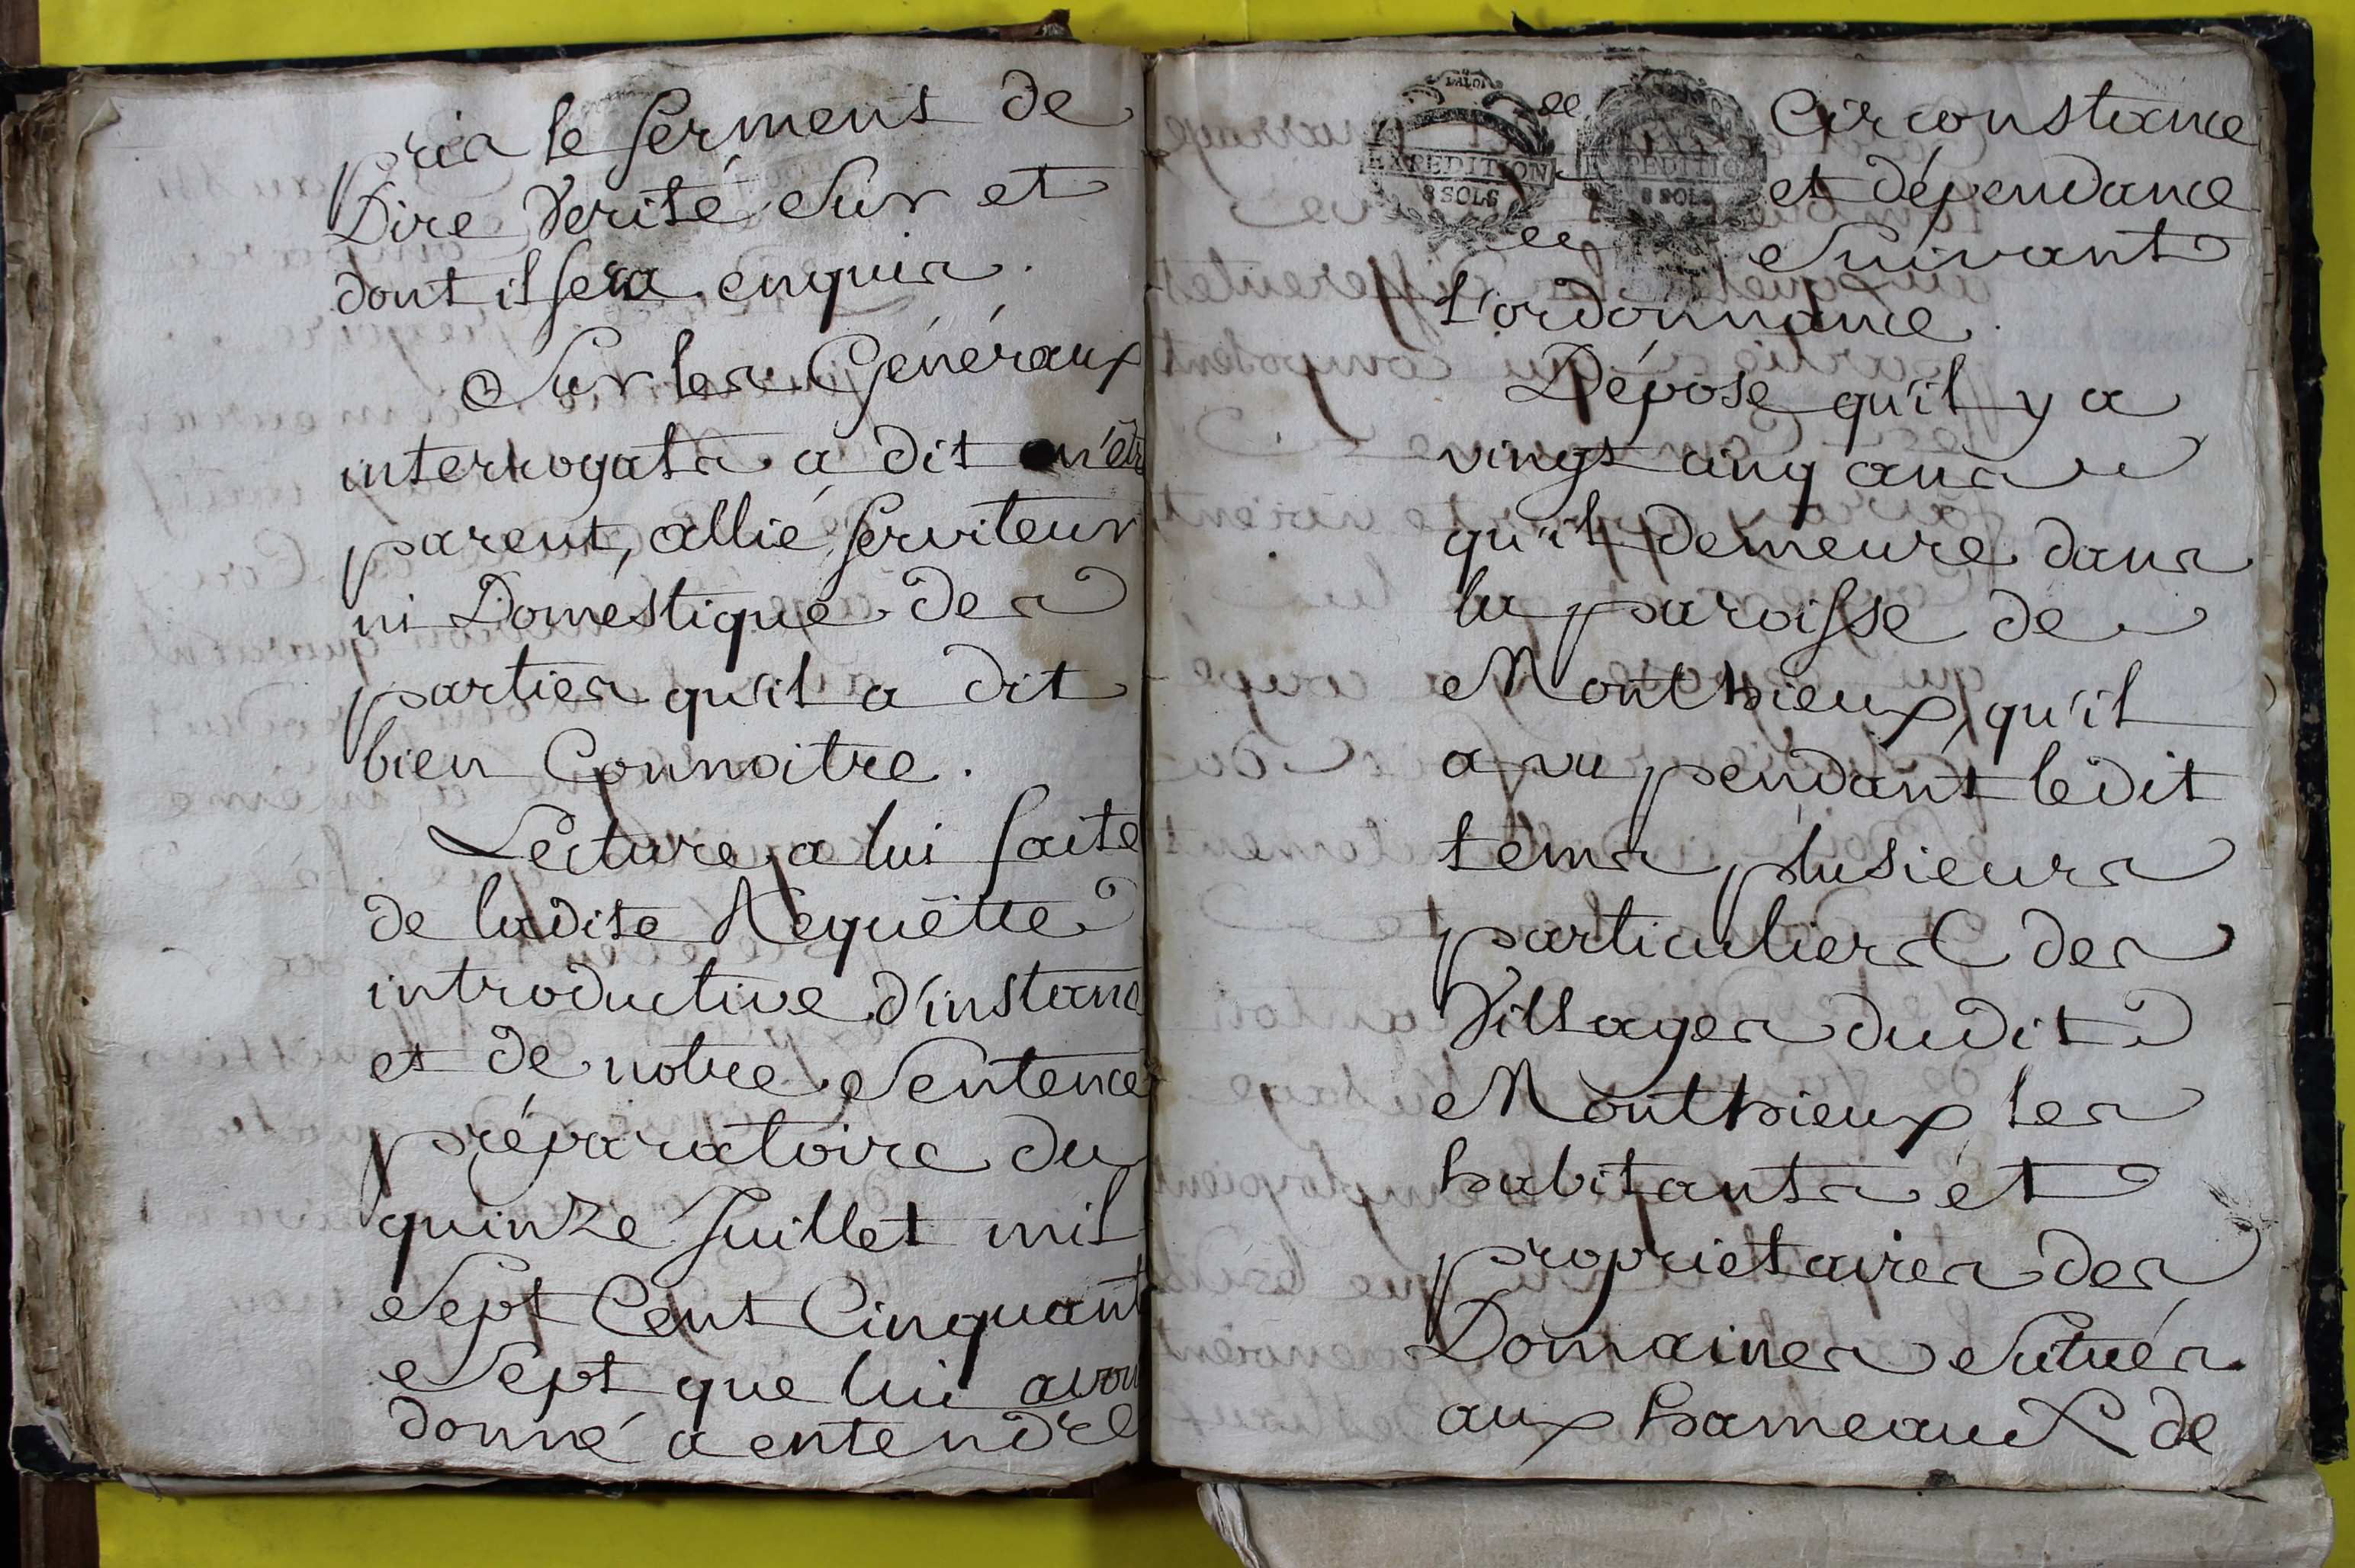 pris le serment de
Dire Verité Sur et
dont il sera enquis.
Sur les Généraux
interrogats a dit n'êtr
parent, allié, serviteur
ni Domestique des
parties qu'il a dit
bien Connoitre.
Lecture a lui faite
de ladite Requêtte
introductive d'instanc
et de notre Sentence
préparatoire du
quinze Juillet mil
Sept Cent Cinquant
Sept que lui avon
donné a entendre
EXPEDITION
8 SOLS
EXPEDITION
8 SOLS
Circonstance
et dépendance
Suivant
l'ordonnance.
Dépose qu'il y a
vingt cinq ans
qu'il demeure dans
la paroisse de
Monthieux, qu'il
a vu pendant ledit
tems plusieurs
particuliers des
Villages dudit
Monthieux les
habitants et
proprietaires des
Domaines Situés
aux hameaux de